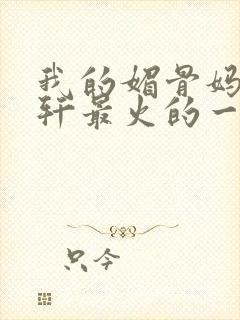 我的媚骨妈
轩最火的一
只今